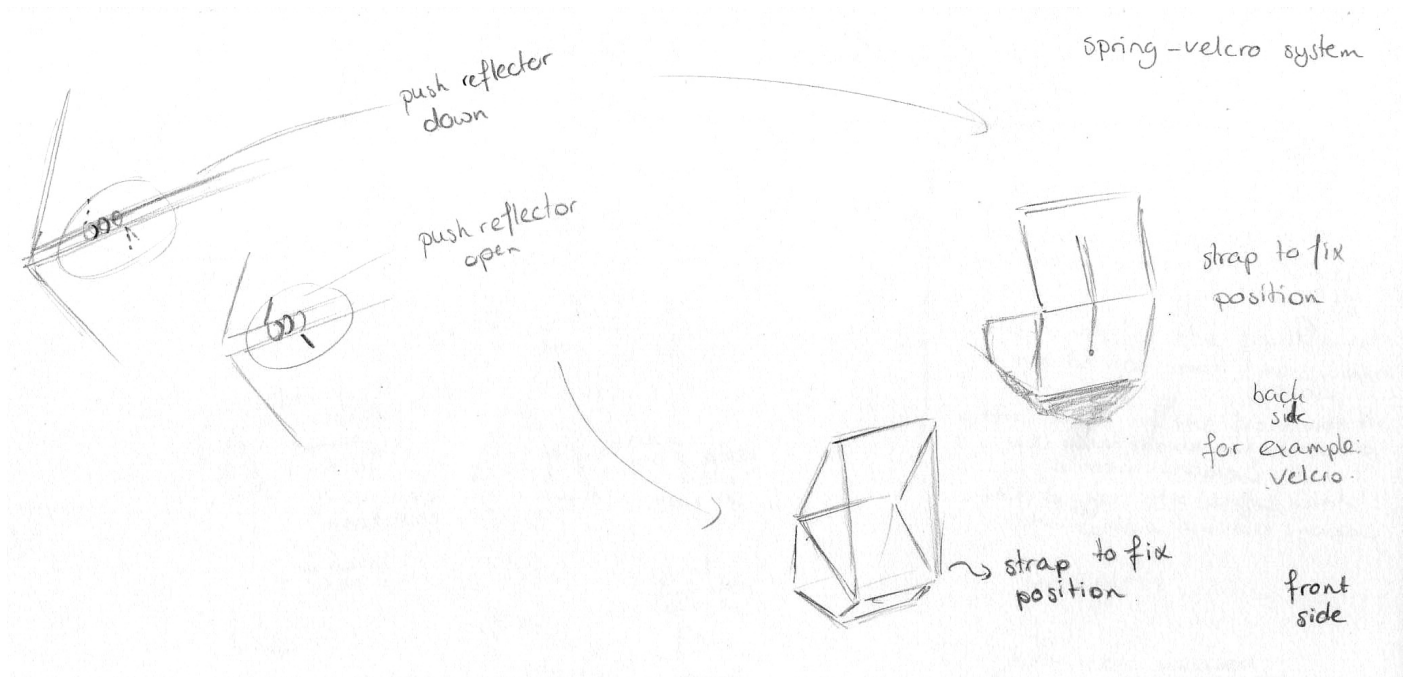 spring-velcro system
push reflector
down
push reflector
open
strap to fix
position
back
side
for example:
velcro.
strap to fix
position
front
side